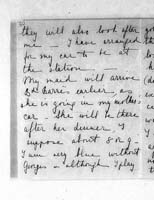 they will also look after
me — I have arranged
for my car to be at
the station —
My maid will arrive
earlier as
she is going in my mother's
car. She will be there
after her dinner, I
suppose about 8 or 9.
I am very blue without
Georges — although I play